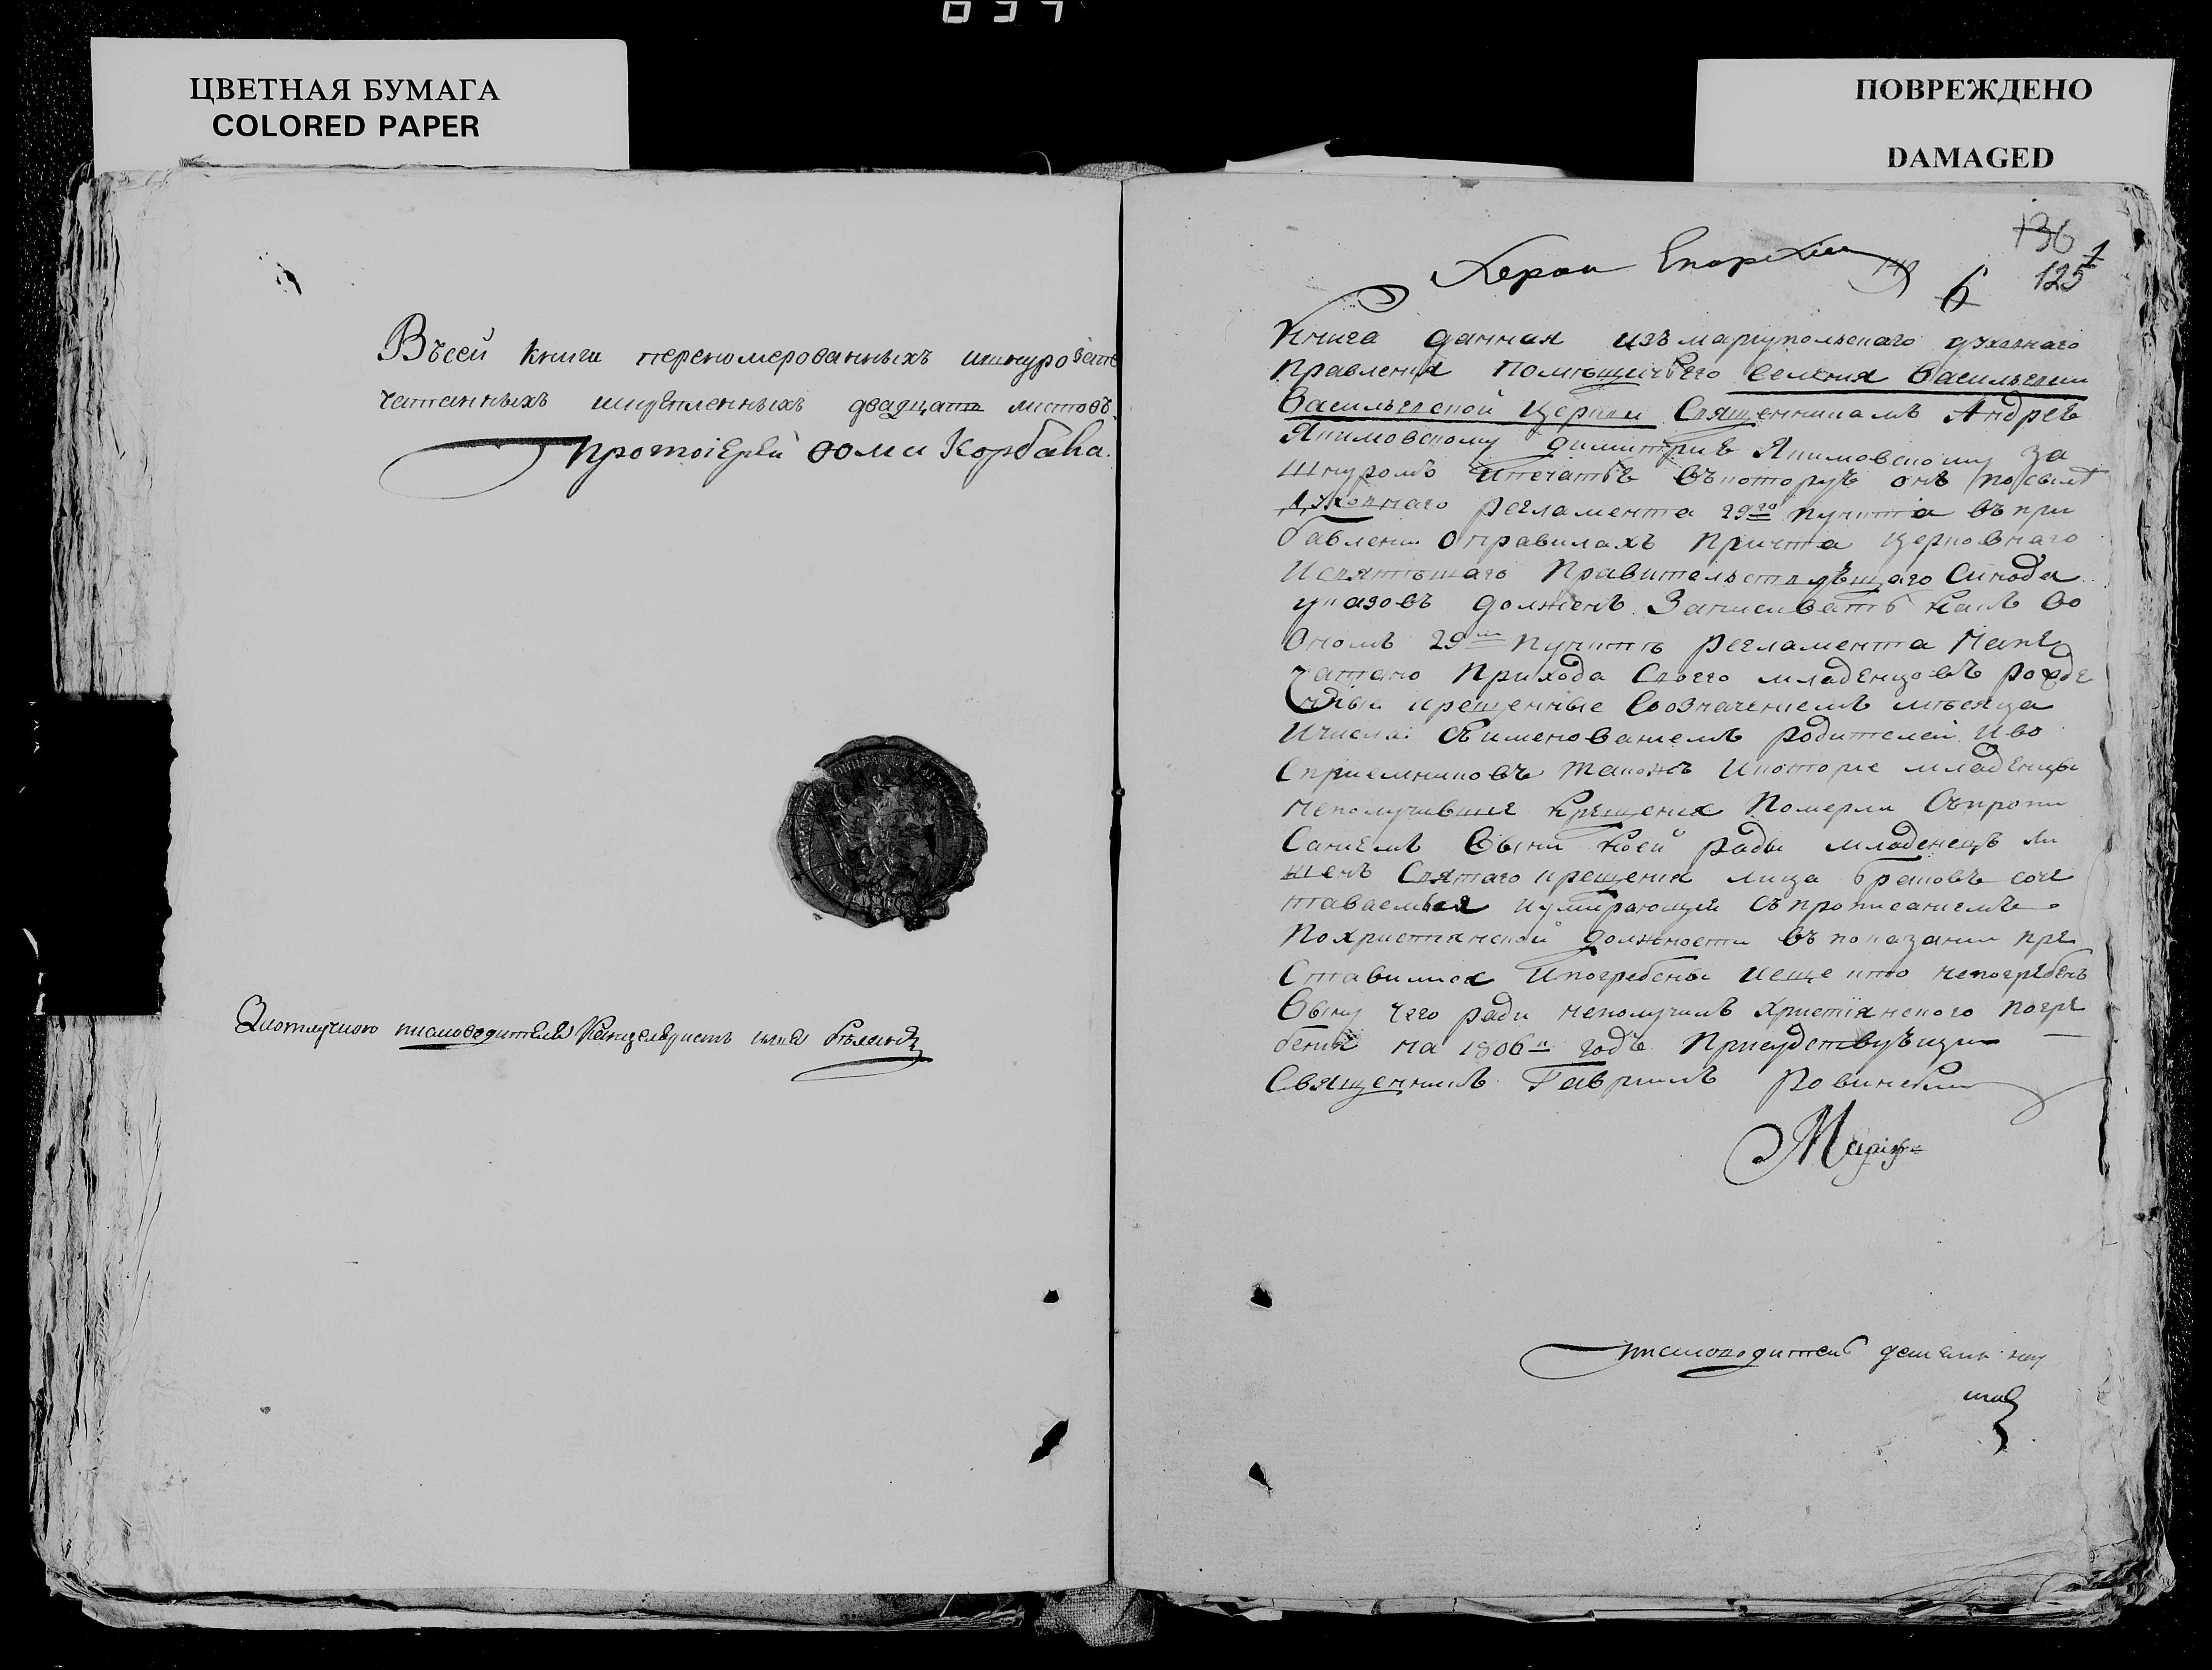 ЦВЕТНАЯ БУМАГА
COLORED PAPER
ПОВРЕЖДЕНО
DAMAGED
Въсей книги перепомерованныхъ
чатанныхъ двадцать листовъ.
протоіерей Ѳома Корбака.
писмоводителя Канцеляристъ
136
125
1
6
Херсон Епархіи
Книга данная изъ мариупольскаго духовнаго
Правления Помѣщичьего Селения Василевки
Василевской Церкви Священникамъ Андрею
Якимовскому димитрию Якимовскому за
шнуромъ ипечатью вькоторую онъ посилѣ
духовнаго регламента 29го пункта въ при
бавлении оправилахъ Причта Церковнаго
Исвятѣшаго Правительствующаго Синода
указовъ долженъ Записывать какъ во
Ономъ 29м пунктѣ регламента Напе
чатано Прихода Своего младенцовъ рожде
крещенные Созначениемъ мѣсяца
Ичисла Сыименованиемъ родителей Иво
Сприемниковъ такожъ Икоторые младенцы
неполучившие Крещения Померли Съпропи
Саниемъ Выни коей ради младенецъ ли
шенъ Святаго крещения лица браковъ соче
таваемыя иумирающии съпрописаниемъ
Похристианской должности въ показании пре
Ставились Ипогребены Иеще кто непогребенъ
Выну чего ради неполучилъ христіянского погре
бения на 1806й годъ Присудствующии
Священникъ Гавриилъ Ровинский
писмоводитель